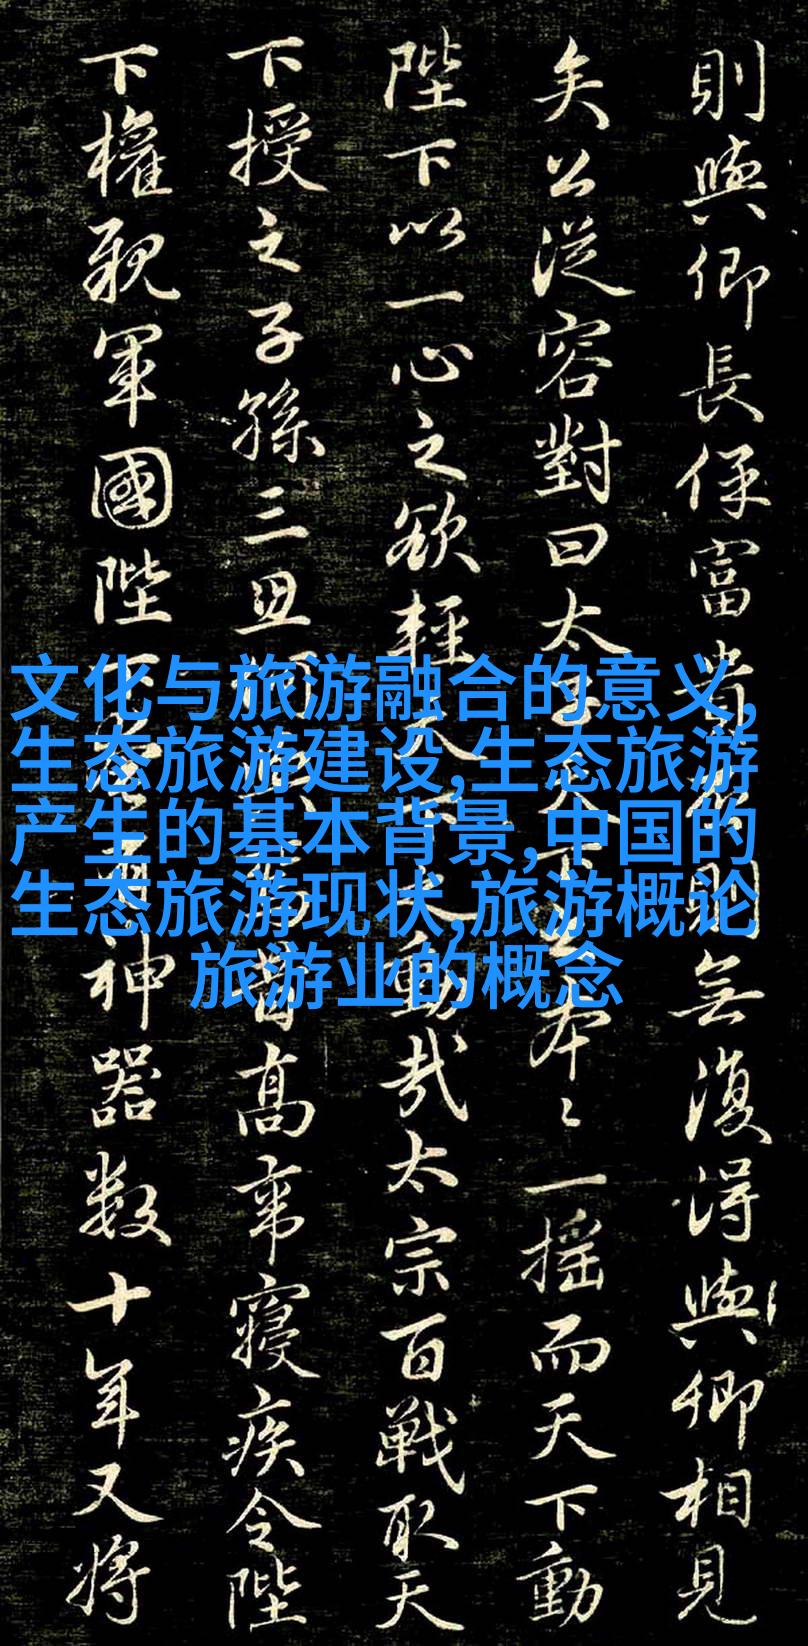 則與卿長保富貴則無復得與卿相見
矣公從容對曰太子天下本〻一搖而天下動
陛下以一心之欲輕天動哉太宗百戰取天
下授之子孫三四高帝寢疾令陛
下權親軍國陛下神器數十年又將
文化与旅游融合的意义,
生态旅游建设,生态旅游
产生的基本背景,中国的
生态旅游现状,旅游概论
旅游业的概念